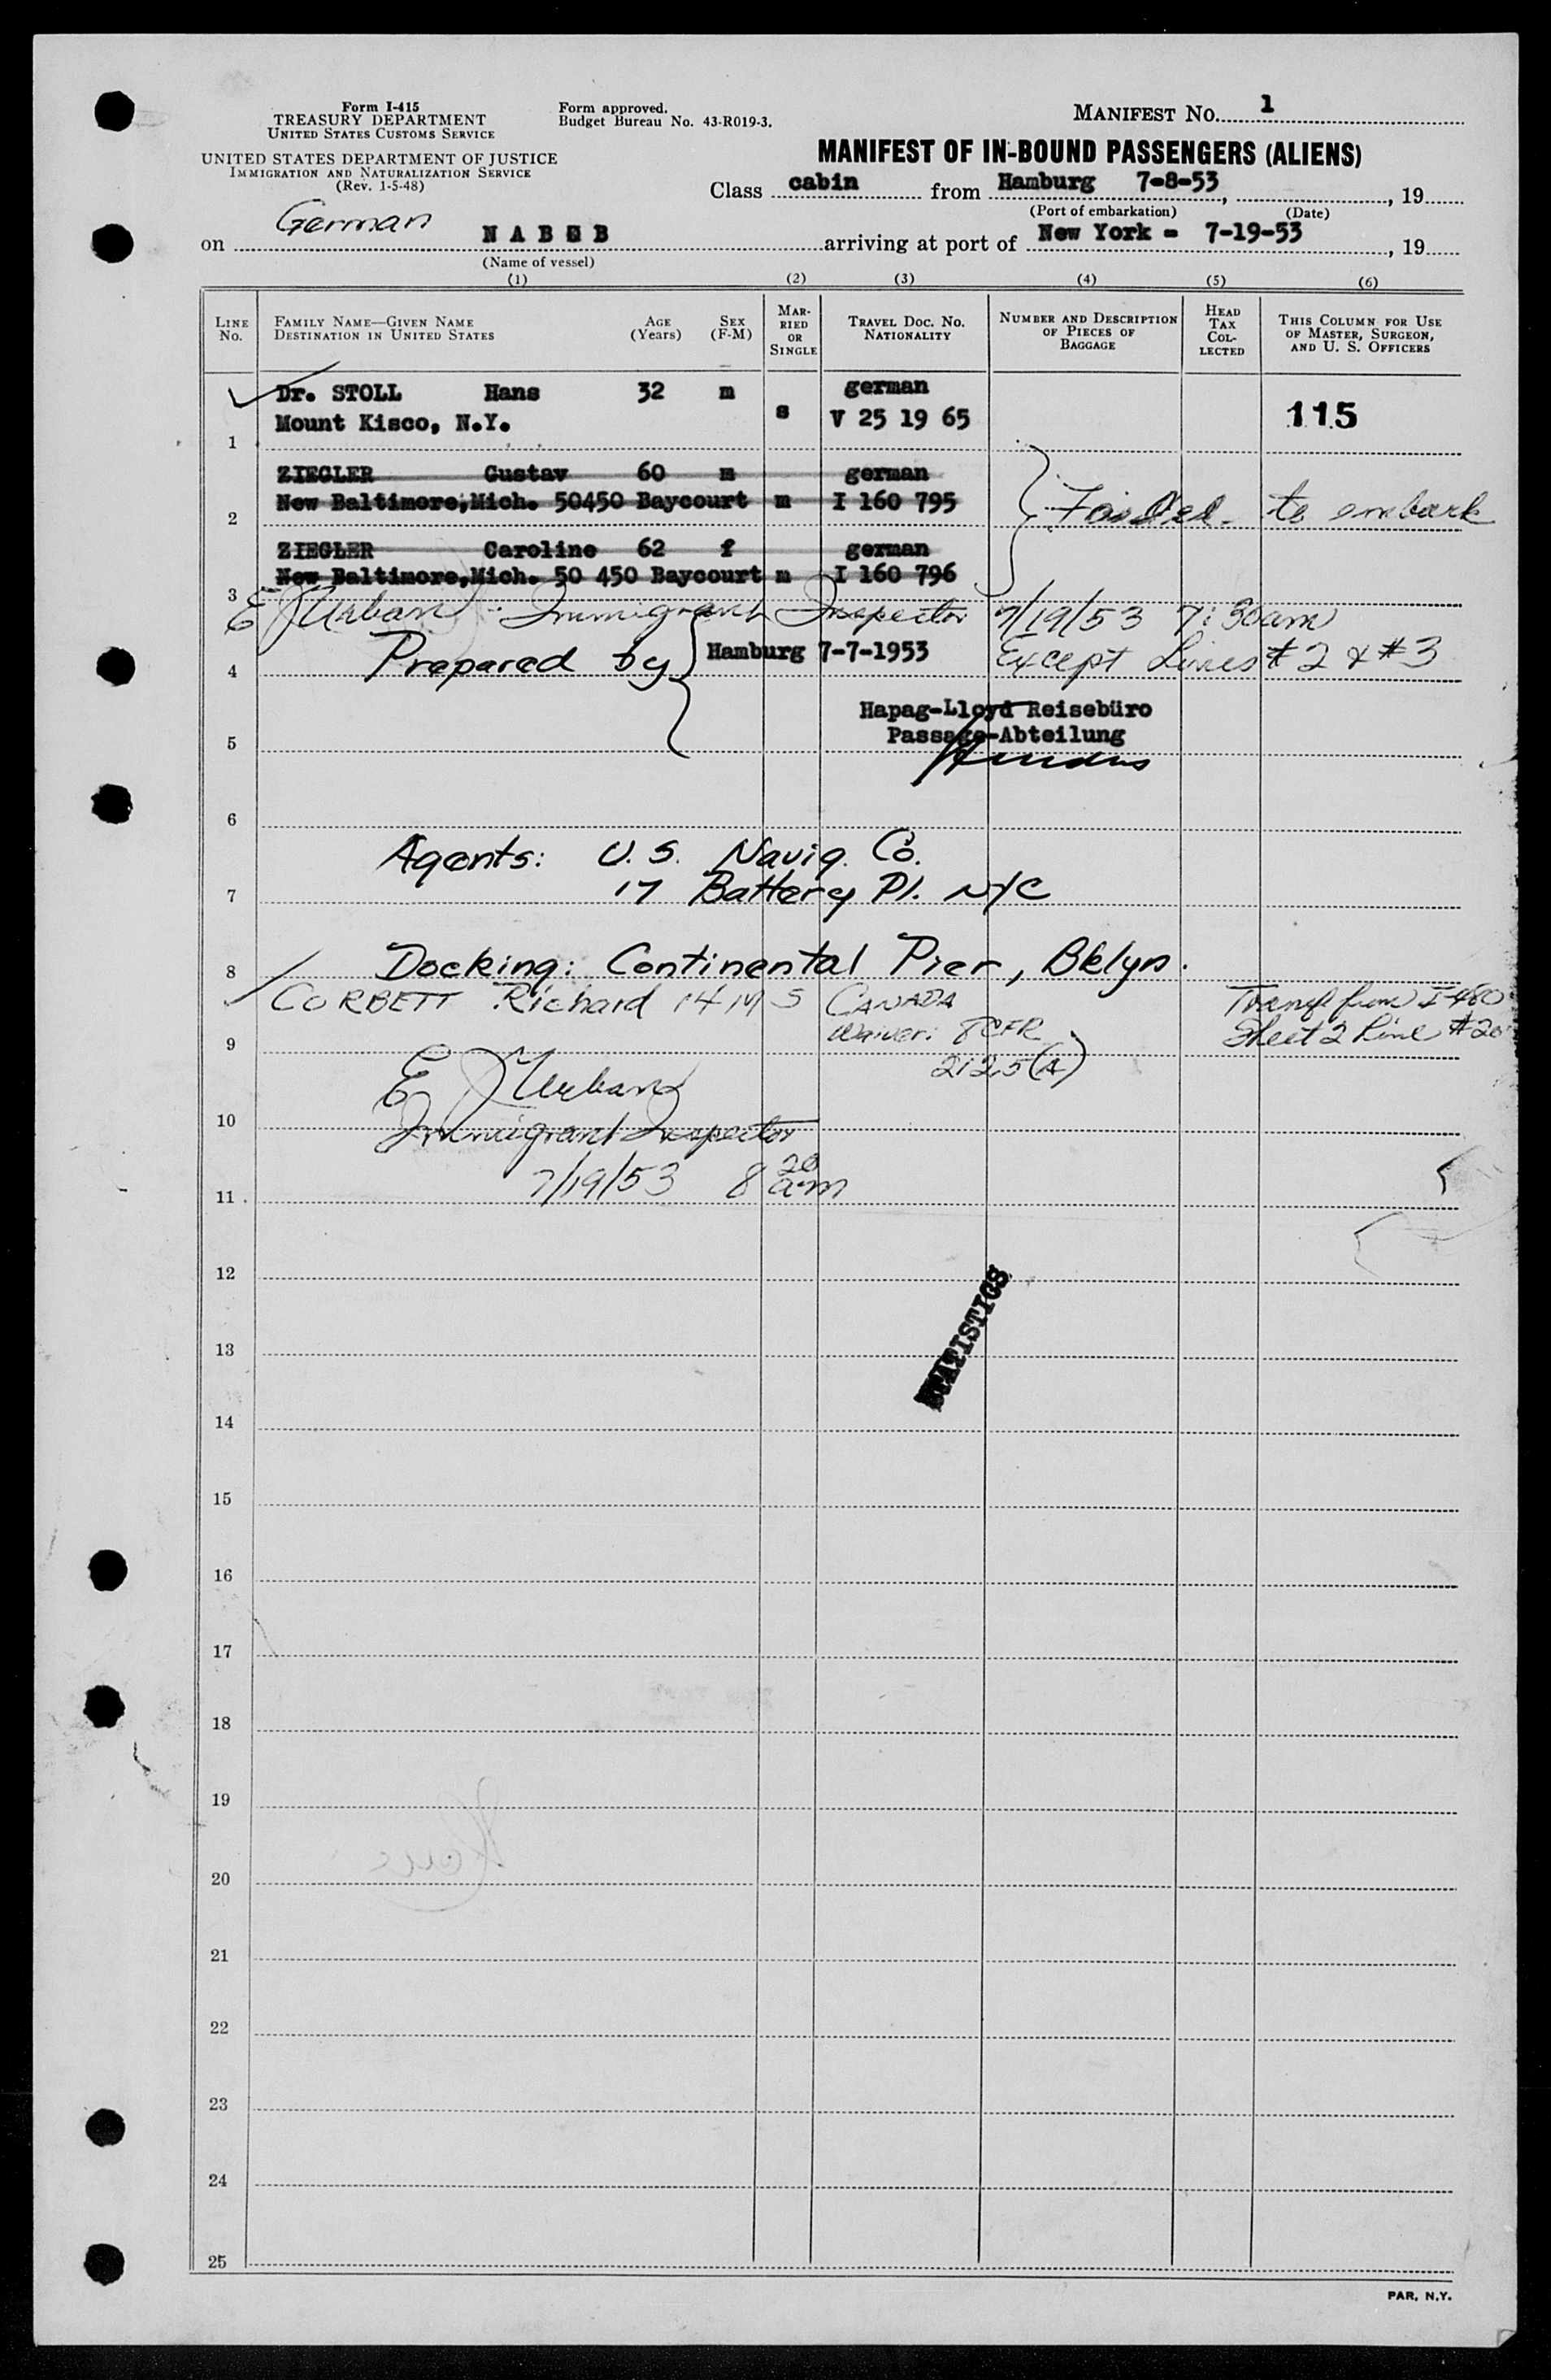 Form I-415
TREASURY DEPARTMENT
UNITED STATES CUSTOMS SERVICE
UNITED STATES DEPARTMENT OF JUSTICE
IMMIGRATION AND NATURALIZATION SERVICE
(Rev. 1-5-48)
Form approved.
Budget Bureau No. 43-R019-3.
MANIFEST No. 1
MANIFEST OF IN-BOUND PASSENGERS (ALIENS)
Class cabin from Hamburg 7-8-53, , 19
(Port of embarkation) (Date)
on German NABOB arriving at port of New York - 7-19-53, 19
(Name of vessel)
(1) (2) (3) (4) (5) (6)
LINE No. FAMILY NAME—GIVEN NAME DESTINATION IN UNITED STATES AGE (Years) SEX (F-M) MARRIED OR SINGLE TRAVEL DOC. No. NATIONALITY NUMBER AND DESCRIPTION OF PIECES OF BAGGAGE HEAD TAX COLLECTED THIS COLUMN FOR USE OF MASTER, SURGEON, AND U. S. OFFICERS
Dr. STOLL Hans 32 m german
1 Mount Kisco, N.Y. s V 25 19 65 115
ZIEGLER Gustav 60 m german
2 New Baltimore, Mich. 50450 Baycourt m I 160 795 Failed to embark
ZIEGLER Caroline 62 f german
3 New Baltimore, Mich. 50 450 Baycourt m I 160 796
E J Urban Immigrant Inspector 7/19/53 7:30am
4 Prepared by Hamburg 7-7-1953 Except Lines #2 & #3
Hapag-Lloyd Reisebüro
5 Passage-Abteilung
6
Agents: U.S. Navig. Co.
7 17 Battery Pl. NYC
8 Docking: Continental Pier, Bklyn.
CORBETT Richard 14 M S CANADA Transf from I-480
9 Waiver: 8CFR Sheet 2 Line #20
212.5(A)
E J Urban
10 Immigrant Inspector
11 7/19/53 8 20 a.m
12
STATISTICS
13
14
15
16
17
18
19
20
21
22
23
24
25
PAR, N.Y.